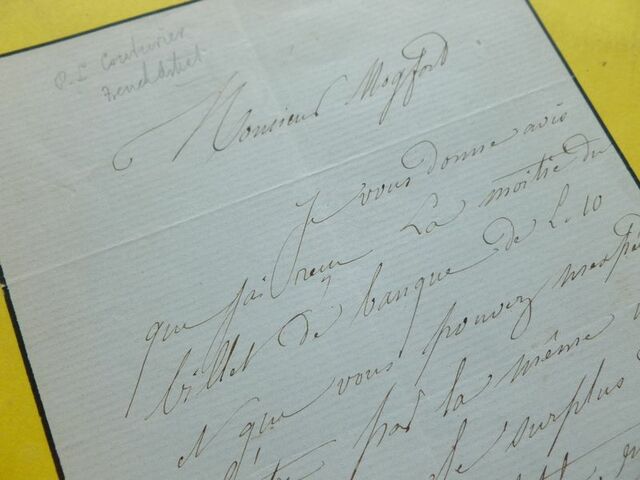 P-L Couturier
French Artist
Monsieur Mogford
Je vous donne avis
que jai recu La moitié du
billet de banque de L. 10
et que vous pouvez
par la même
le surplus